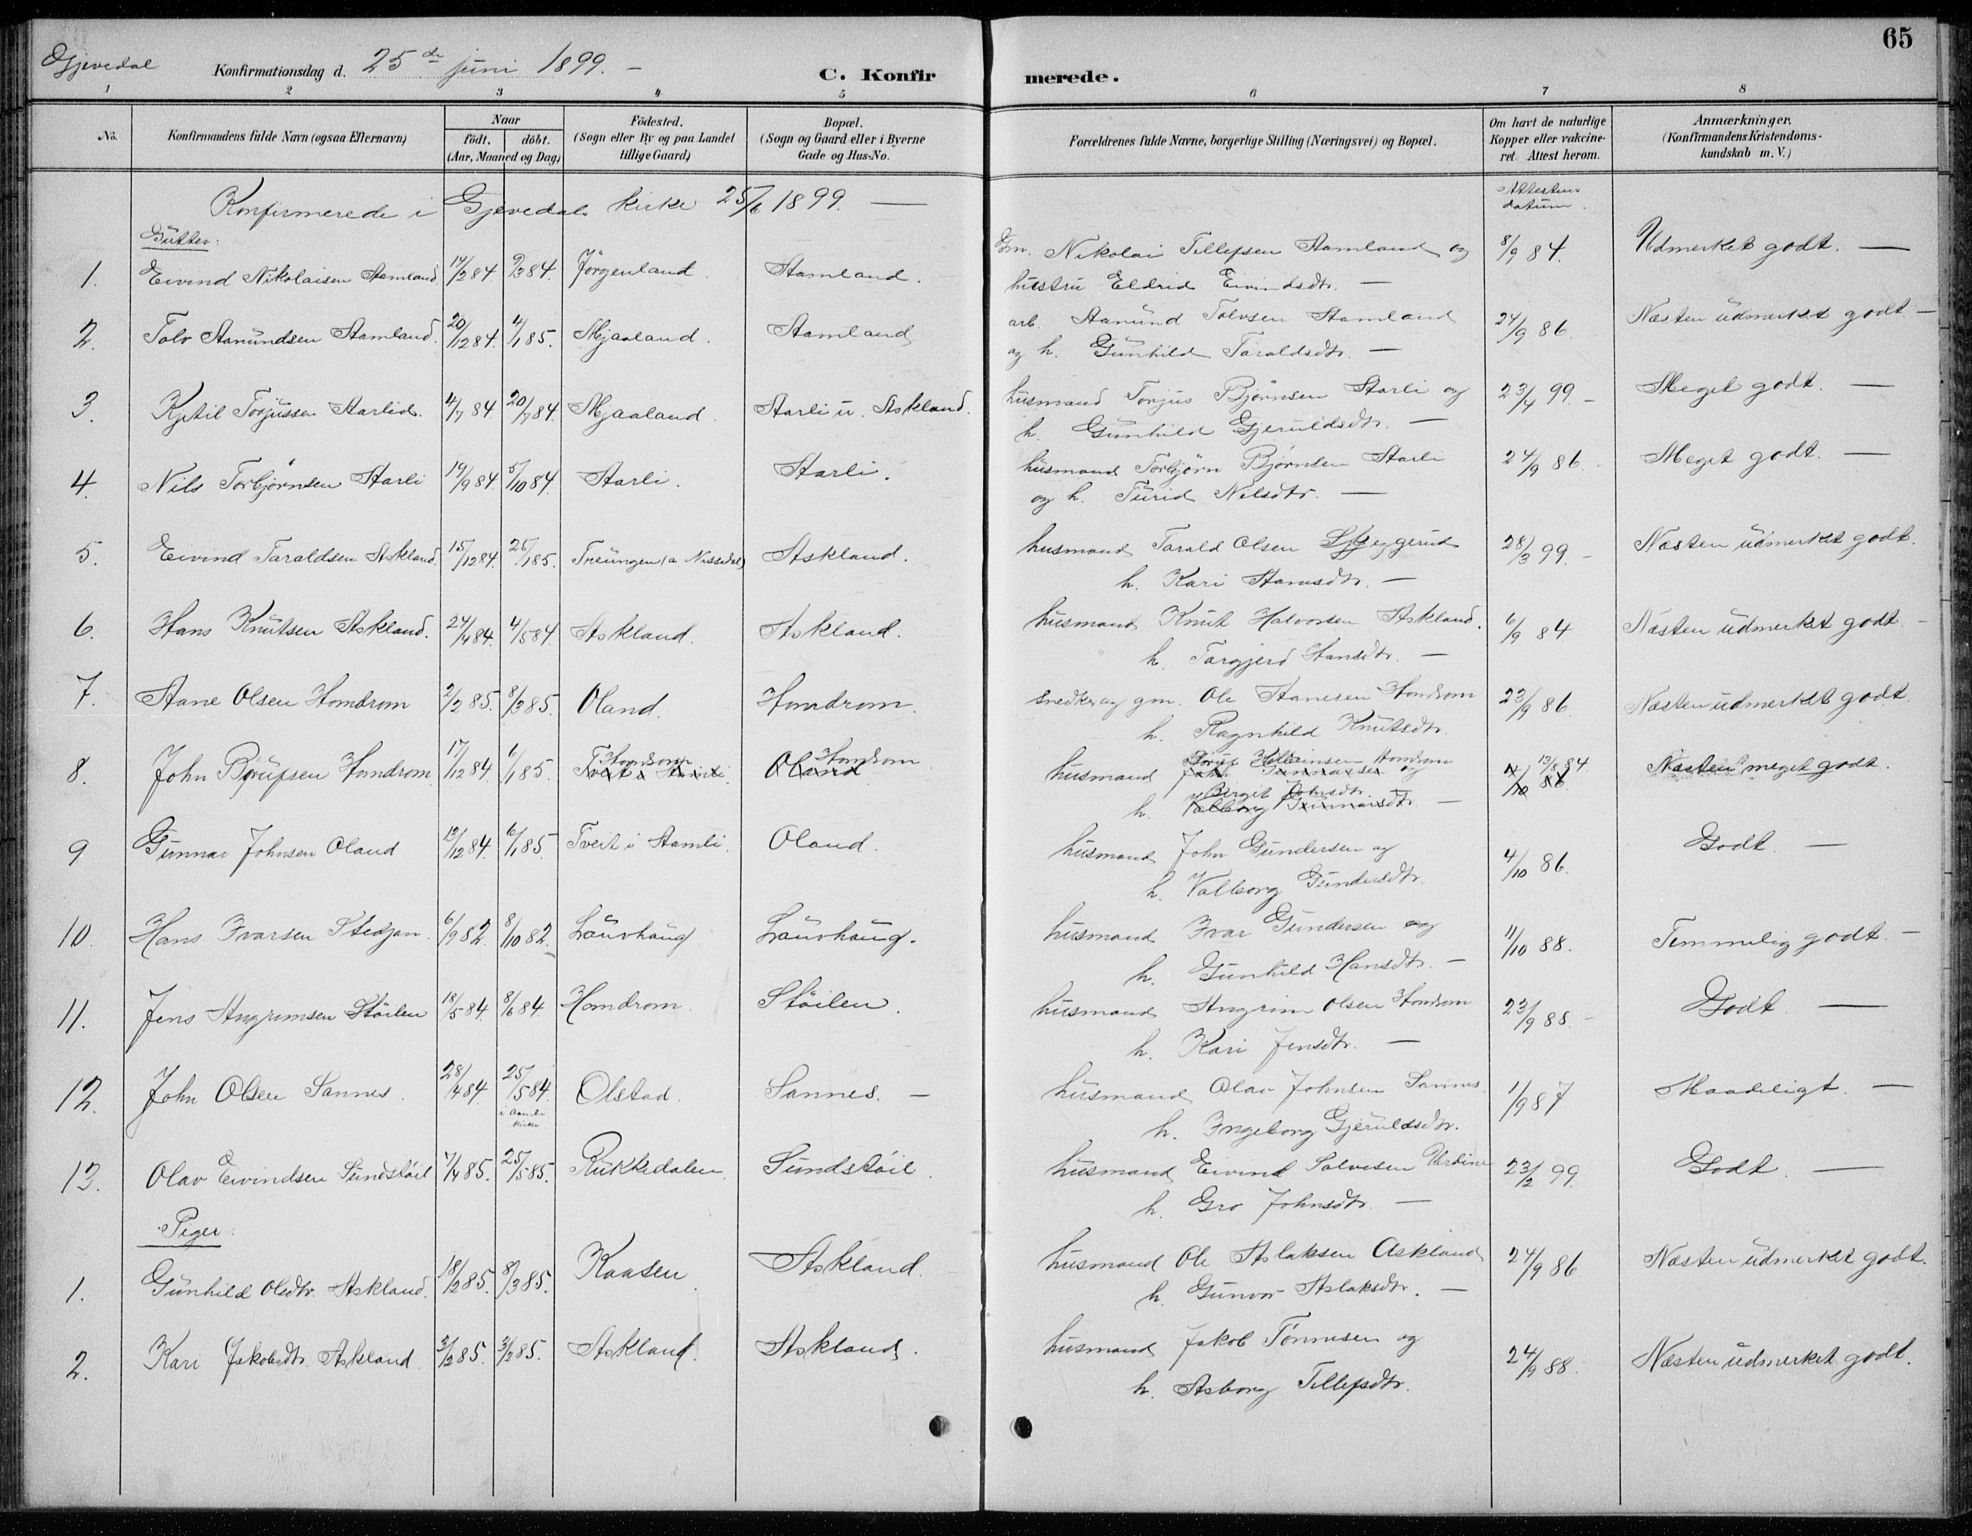 65
Gjevedal Konfirmationsdag d. 25de juni 1899. – C. Konfirmerede.
1 2 3 4 5 6 7 8
No. Konfirmandens fulde Navn (ogsaa Efternavn) Naar födt. döbt. (Aar, Maaned og Dag) Födested. (Sogn eller By og paa Landet tillige Gaard) Bopæl. (Sogn og Gaard eller i Byerne Gade og Hus-No. Forældrenes fulde Navne, borgerlige Stilling (Næringsvei) og Bopæl. Om havt de naturlige Kopper eller vakcineret. Attest herom. Anmærkninger. (Konfirmandens Kristendomskundskab m. V.)
Konfirmerede i Gjevedals kirke 25/6 1899. — Attestens datum.
Gutter:
1. Eivind Nikolaisen Aamland 84. 84. Jörgenland. Aamland. Gm. Nikolai Tellefsen Aamland og 8/9 84. Udmerket godt. —
hustru Eldrid Eivindsdtr. —
2. Tolv Aanundsen Aamland. 20/12 84. 4/1 85. Mjaaland. Aamland arb. Aanund Tolvsen Aamland 24/9 86. Næsten udmerket godt. –
og h. Gunhild Taraldsdtr. —
3. Kjetil Torjussen Aarlid. 4/7 84 20/7 84. Mjaaland. Aarli u. Askland. husmand Torjus Bjørnsen Aarli og 23/4 99. – Meget godt. —
h. Gunhild Gjeruldsdtr. —
4. Nils Torbjørnsen Aarli 19/9 84. 5/10 84. Aarli. Aarli. husmand Torbjørn Bjørnsen Aarli 24/9 86. Meget godt. —
og h. Turid Nilsdtr. —
5. Eivind Taraldsen Askland. 15/12 84. 25/1 85. Treungen (a Nissedal) Askland. husmand Tarald Olsen 28/3 99. – Næsten udmerket godt.
h. Kari Aanisdtr. —
6. Hans Knutsen Askland. 24/4 84. 4/5 84 Askland. Askland. husmand Knut Halvorsen Askland. 6/9 84 Næsten udmerket godt. –
h. Targjerd Hansdtr. —
7. Aane Olsen Homdrom 2/2 85. 8/3 85. Oland. Homdrom. snedker og gm. Ole Aanesen Homdrom 23/9 86. Næsten udmerket godt.
h. Ragnhild Knutsdtr.
8. John Bjorupsen Homdrom 17/12 84. 6/1 85. Homdrom Tveit i Aamli. Homdrom Oland husmand Homdrom John Gunnarsen og 13/8 84 4/10 86 Næsten meget godt.
h. Birgit Johnsdtr. Valborg Gunnarsdtr. —
9 Gunnar Johnsen Oland 84. 6/1 85. Tveit i Aamli. Oland. husmand John Gundersen og 4/10 86. Godt. —
h. Valborg Gundersdtr.
10. Hans Ivarsen Stedjan. 6/9 82. 8/10 82. Lauvhaug Lauvhaug. husmand Ivar Gundersen og 11/10 88. Temmelig godt. –
h. Gunhild Hansdtr. –
11. Jens Angrimsen Støilen 18/5 84. 8/6 84. Homdrom. Støilen. husmand Angrim Olsen Homdrom 23/9 88. – Godt. —
h. Kari Jensdtr. —
12. John Olsen Sannes. 28/4 84. 25/5 84. i Aamli kirke. Olstad. Sannes. – husmand Olav Johnsen Sannes. 1/9 87 Maadeligt. —
h. Ingeborg Gjeruldsdtr.
13. Olav Eivindsen Sundstøil 7/4 85. 25/5 85. Rukkedalen Sundstøil husmand Eivind Salvesen 23/2 99. Godt. —
h. Gro Johnsdtr. —
Piger:
1. Gunhild Olsdtr. Askland. 18/2 85. 8/3 85. Kaasen Askland. husmand Ole Aslaksen Askland 24/9 86 Næsten udmerket godt.
h. Gunvor Aslaksdtr. —
2. Kari Jakobsdtr. Askland. 85. 85. Askland. Askland. husmand Jakob Tønnesen og 24/9 88. Næsten udmerket godt.
h. Asborg Tellefsdtr.